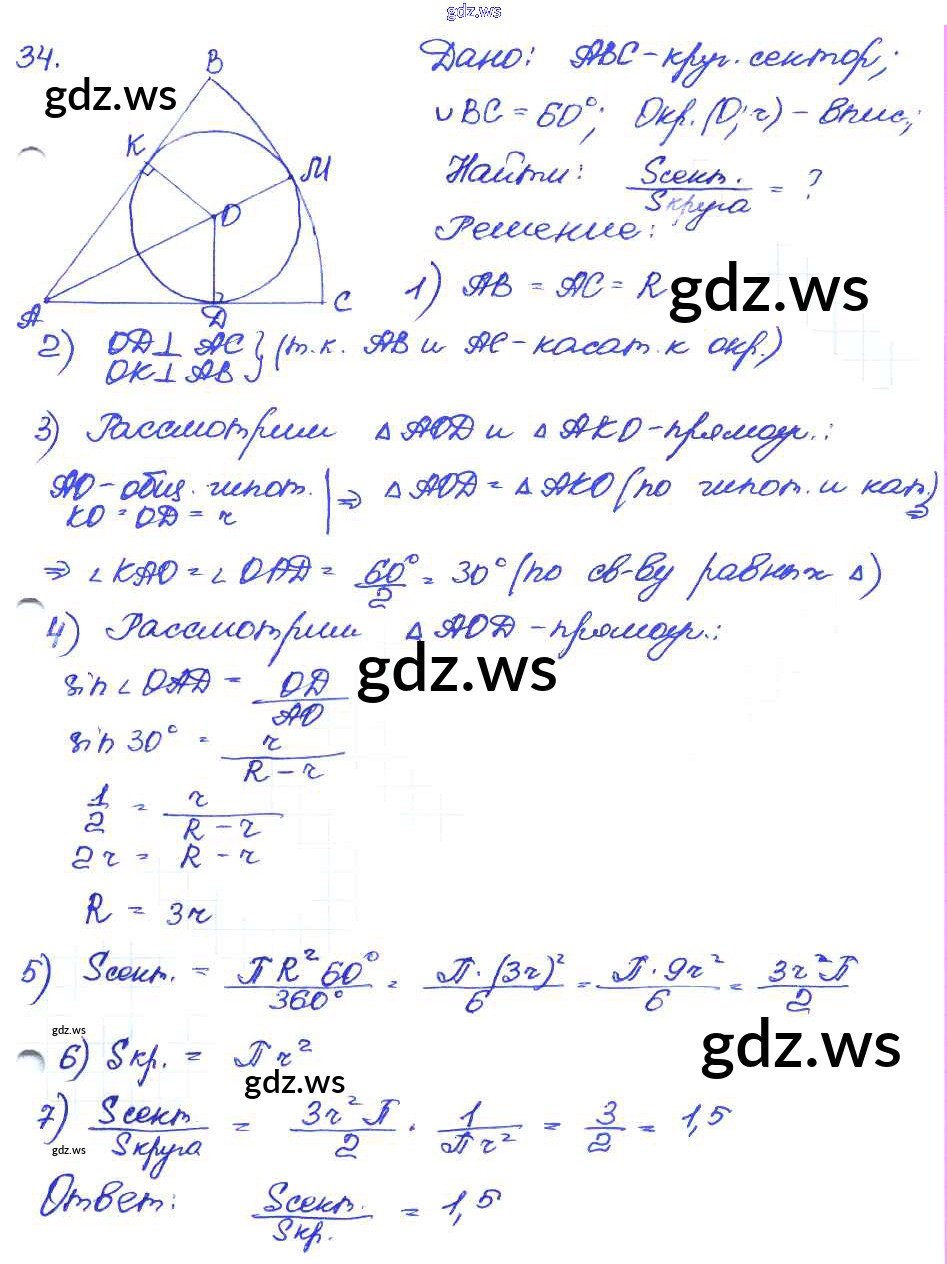 gdz.ws
34.
gdz.ws
B
K
M
O
A
D
C
Дано: ABC-круг. сектор;
∪BC = 60°; Окр.(O;r) - впис.;
Найти: Sсект. / Sкруга = ?
Решение:
1) AB = AC = R
gdz.ws
2) OD⊥ AC
OK⊥ AB } (т.к. AB и AC-касат. к окр.)
3) Рассмотрим △AOD и △AKO-прямоуг.:
AO-общ. гипот.
KO = OD = r | ⇒ △AOD = △AKO (по гипот. и кат.) ⇒
⇒ ∠KAO = ∠OAD = 60°/2 = 30° (по св-ву равных △)
4) Рассмотрим △AOD-прямоуг.:
gdz.ws
sin∠OAD = OD/AO
sin 30° = r/(R-r)
1/2 = r/(R-r)
2r = R-r
R = 3r
5) Sсект. = ПR²60°/360° = П·(3r)²/6 = П·9r²/6 = 3r²П/2
gdz.ws
gdz.ws
6) Sкр. = Пr²
gdz.ws
7) Sсект/Sкруга = 3r²П/2 · 1/Пr² = 3/2 = 1,5
gdz.ws
Ответ: Sсект./Sкр. = 1,5